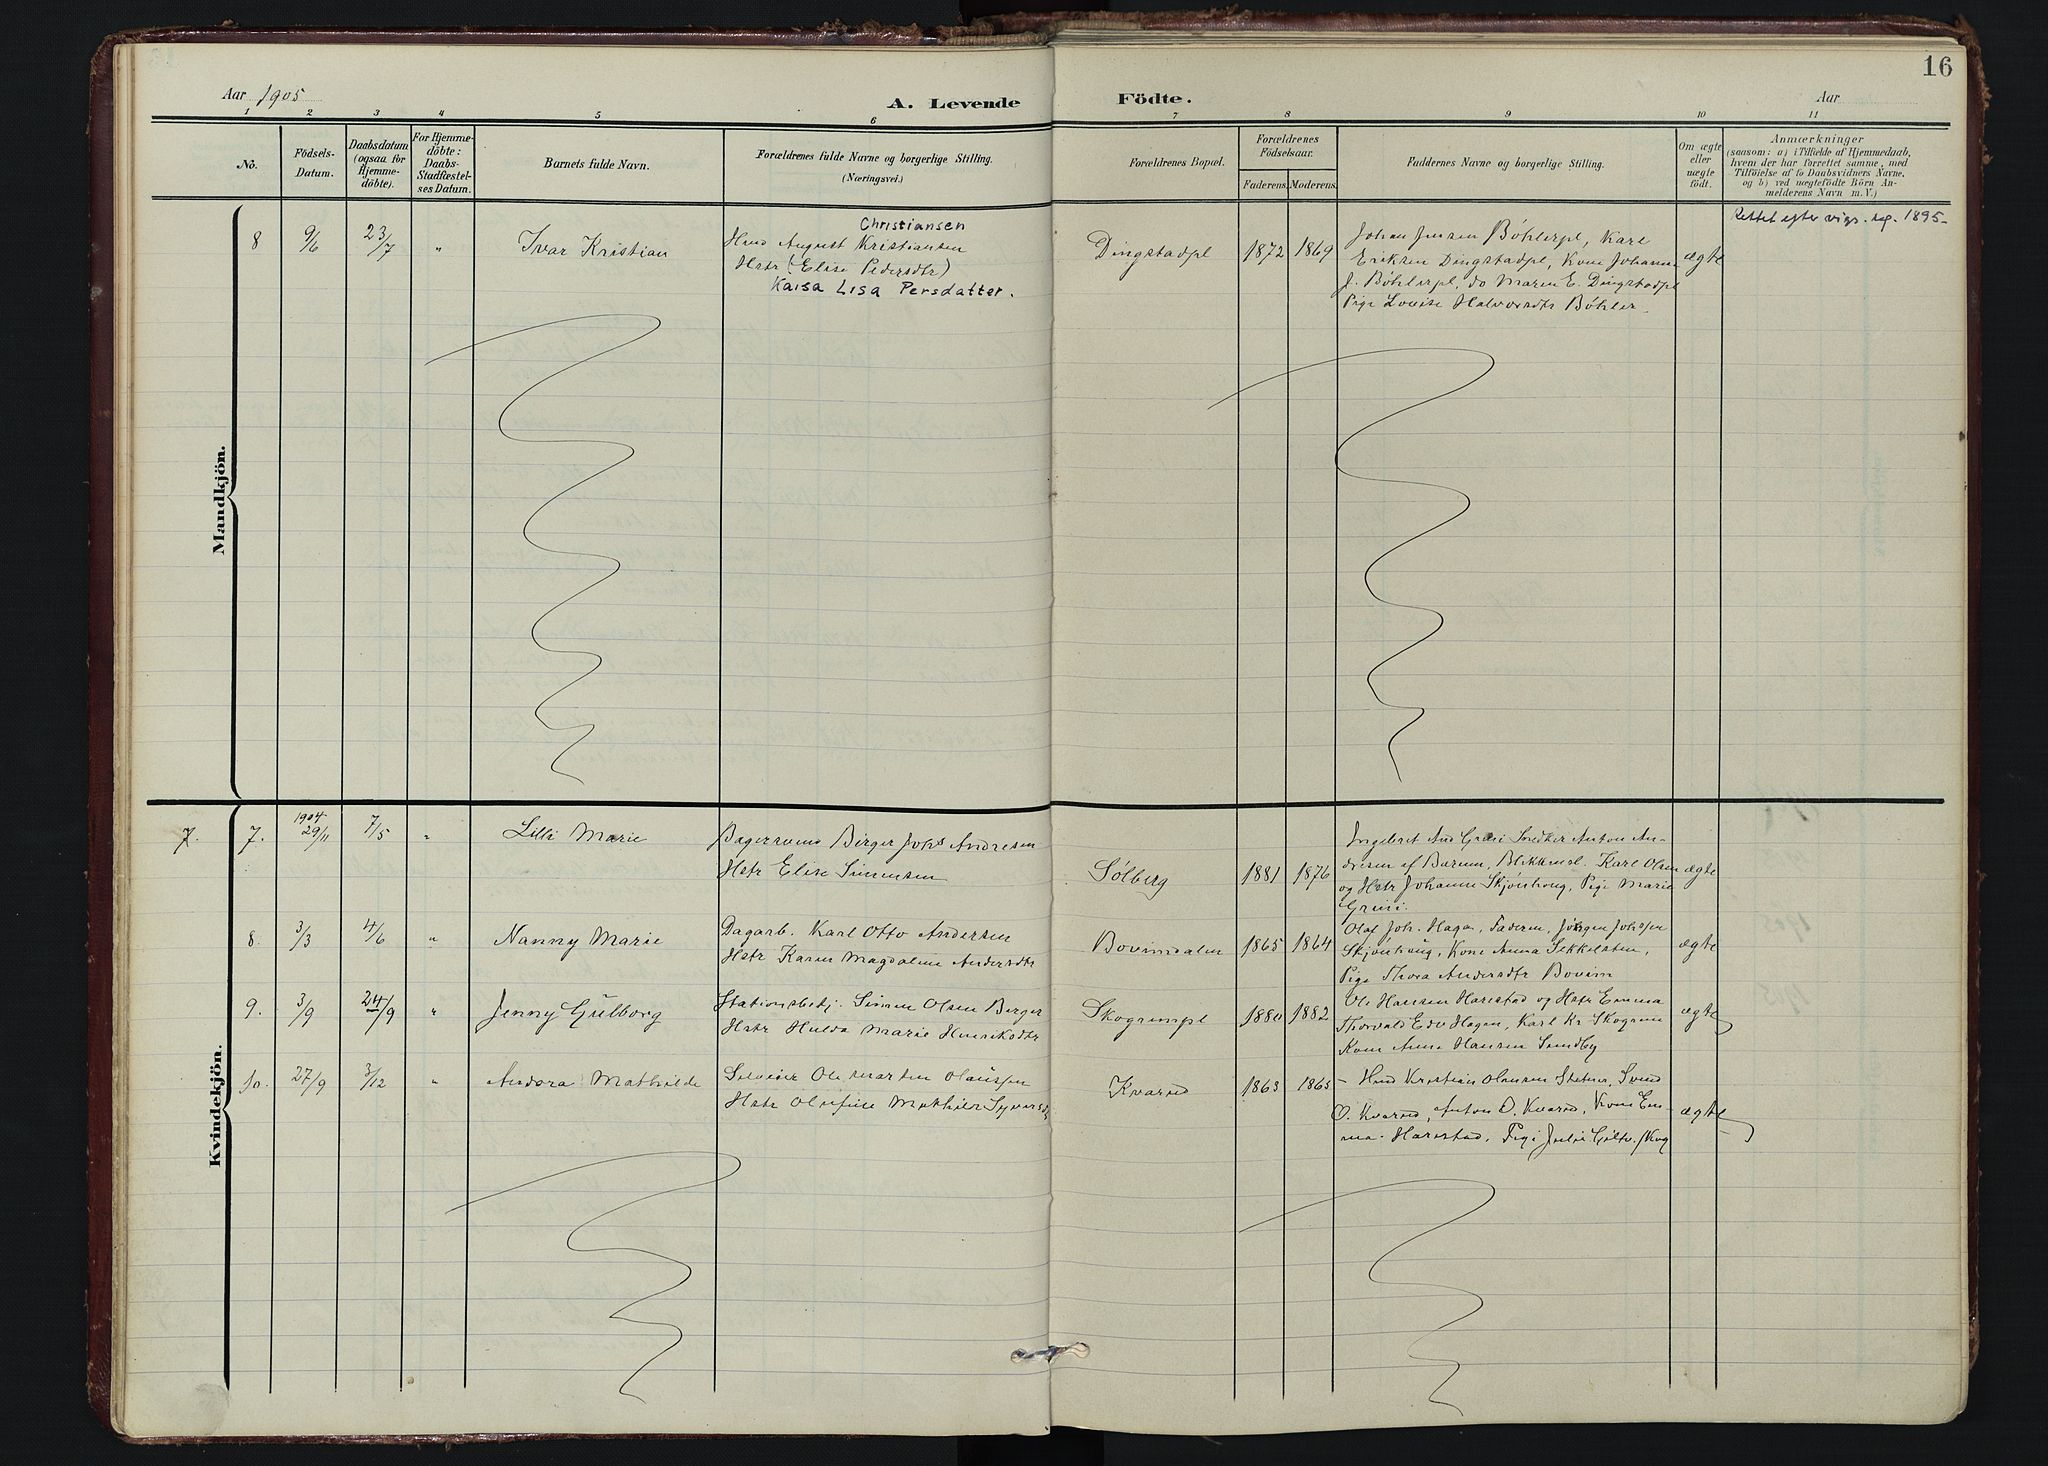 16
Aar 1905
A. Levende
Födte.
Aar
1 2 3 4 5 6 7 8 9 10 11
No.
Födsels-
Datum.
Daabsdatum
(ogsaa for
Hjemme-
döbte).
For Hjemme-
döbte:
Daabs-
Stadfæstel-
ses Datum.
Barnets fulde Navn.
Forældrenes fulde Navne og borgerlige Stilling.
(Næringsvei.)
Forældrenes Bopæl.
Forældrenes
Födselsaar.
Faderens. Moderens.
Faddernes Navne og borgerlige Stilling.
Om ægte
eller
uægte
födt.
Anmærkninger
(saasom: a) i Tilfælde af Hjemmedaab,
hvem der har forrettet samme, med
Tilföielse af to Daabsvidners Navne,
og b) ved uægtefödte Börn An-
melderens Navn m. V.)
Mandkjön.
8 9/6 23/7 " Ivar Kristian
Christiansen
August Kristiansen
Hstr (Elise Pedersdtr)
Kaisa Lisa Persdatter.
Dingstadpl 1872 1869
Johan Jensen Bøhlerpl, Karl
Eriksen Dingstadpl, Kone Johanne
J. Bøhlerpl, do Maren E. Dingstadpl
Pige Lovise Halvorsdtr Bøhler
ægte
Rettet efter vigs. reg. 1895-
Kvindekjön.
7. 7. 1904 29/11 7/5 " Lilli Marie
Bagersvend Birger Johs Andresen
Hstr Elise Simensen
Sølberg 1881 1876
Ingebret And Smedker Anton An-
dresen af Bærum, Karl Olsen
og Hstr Johanne Pige Marie
ægte
8. 3/3 4/6 " Nanny Marie
Dagarb. Karl Otto Andersen
Hstr Karen Magdalene Andersdtr
Bovimdalen 1865 1864
Olaf Joh. Hagen, Faderen, Jørgen
Kone Anna
Pige Thora Andersdtr Bovim
ægte
9. 3/9 24/9 " Jenny Gulborg
Stationsbetj. Simen Olsen Berger
Hstr Hulda Marie Henriksdtr
Skogrumpl 1880 1882
Ole Hansen Harestad og Hstr Emma
Thorvald Edv Hagen, Karl Kr Skogrum
Kone Anne Hansen Sundby
ægte
10. 27/9 3/12 " Andora Mathilde
Ole Martin Olaussen
Hstr Olufine Mathilde Syversdtr
Kvarud 1863 1865
Kristian Olausen
O. Kvarud, Anton O. Kvarud, Kone Em-
ma Harestad, Pige Julie
ægte